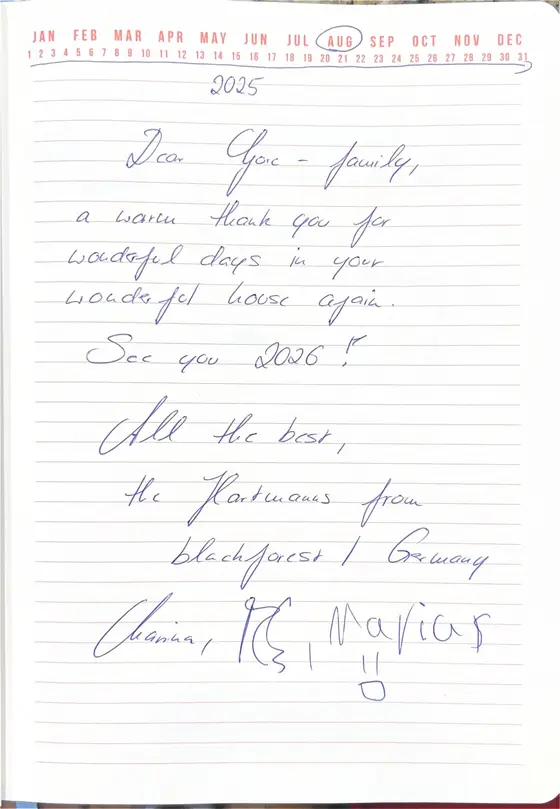 JAN FEB MAR APR MAY JUN JUL AUG SEP OCT NOV DEC
1 2 3 4 5 6 7 8 9 10 11 12 13 14 15 16 17 18 19 20 21 22 23 24 25 26 27 28 29 30 31
2025
Dear - family,
a warm thank you for
wonderful days in your
wonderful house again.
See you 2026 !
All the best,
the Hartmanns from
blackforest / Germany